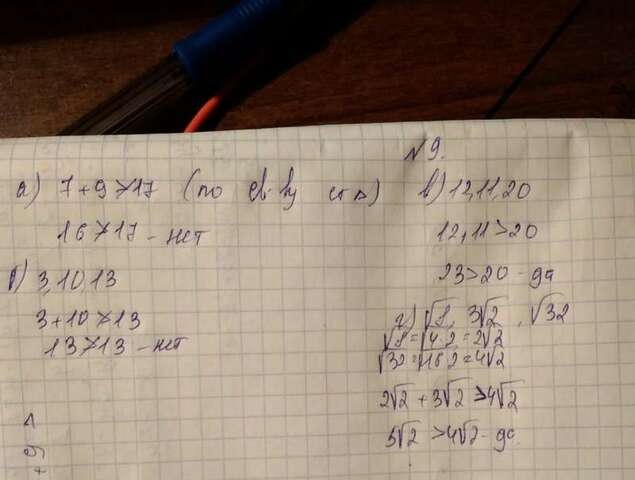 №9.
а) 7+9>17 (по св-ву ст ∆)
16>17 - нет
3,10,13
3+10>13
13>13 - нет
в) 12,11,20
12,11>20
23>20 - да
г) √8, 3√2, √32
√8=√4·2=2√2
√32=√16·2=4√2
2√2+3√2>4√2
5√2>4√2 - да